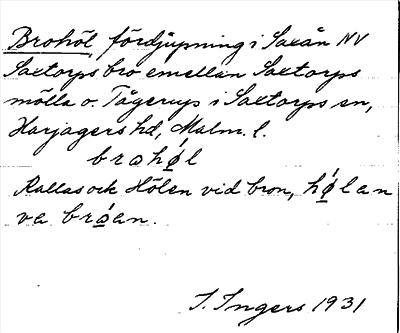 Brohöl, fördjupning i Saxån NV
Saxtorps bro emellan Saxtorps
mölla o. Tågerup i Saxtorps sn,
Harjagers hd, Malm. l.
brahǿl
Kallas ock Hölen vid bron, hǿlan
va bróan.
I. Ingers 1931